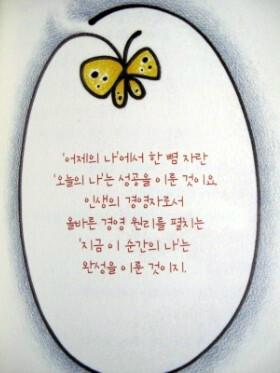 '어제의 나'에서 한 뼘 자란
'오늘의 나'는 성공을 이룬 것이요,
인생의 경영자로서
올바른 경영 원리를 펼치는
'지금 이 순간의 나'는
완성을 이룬 것이지.